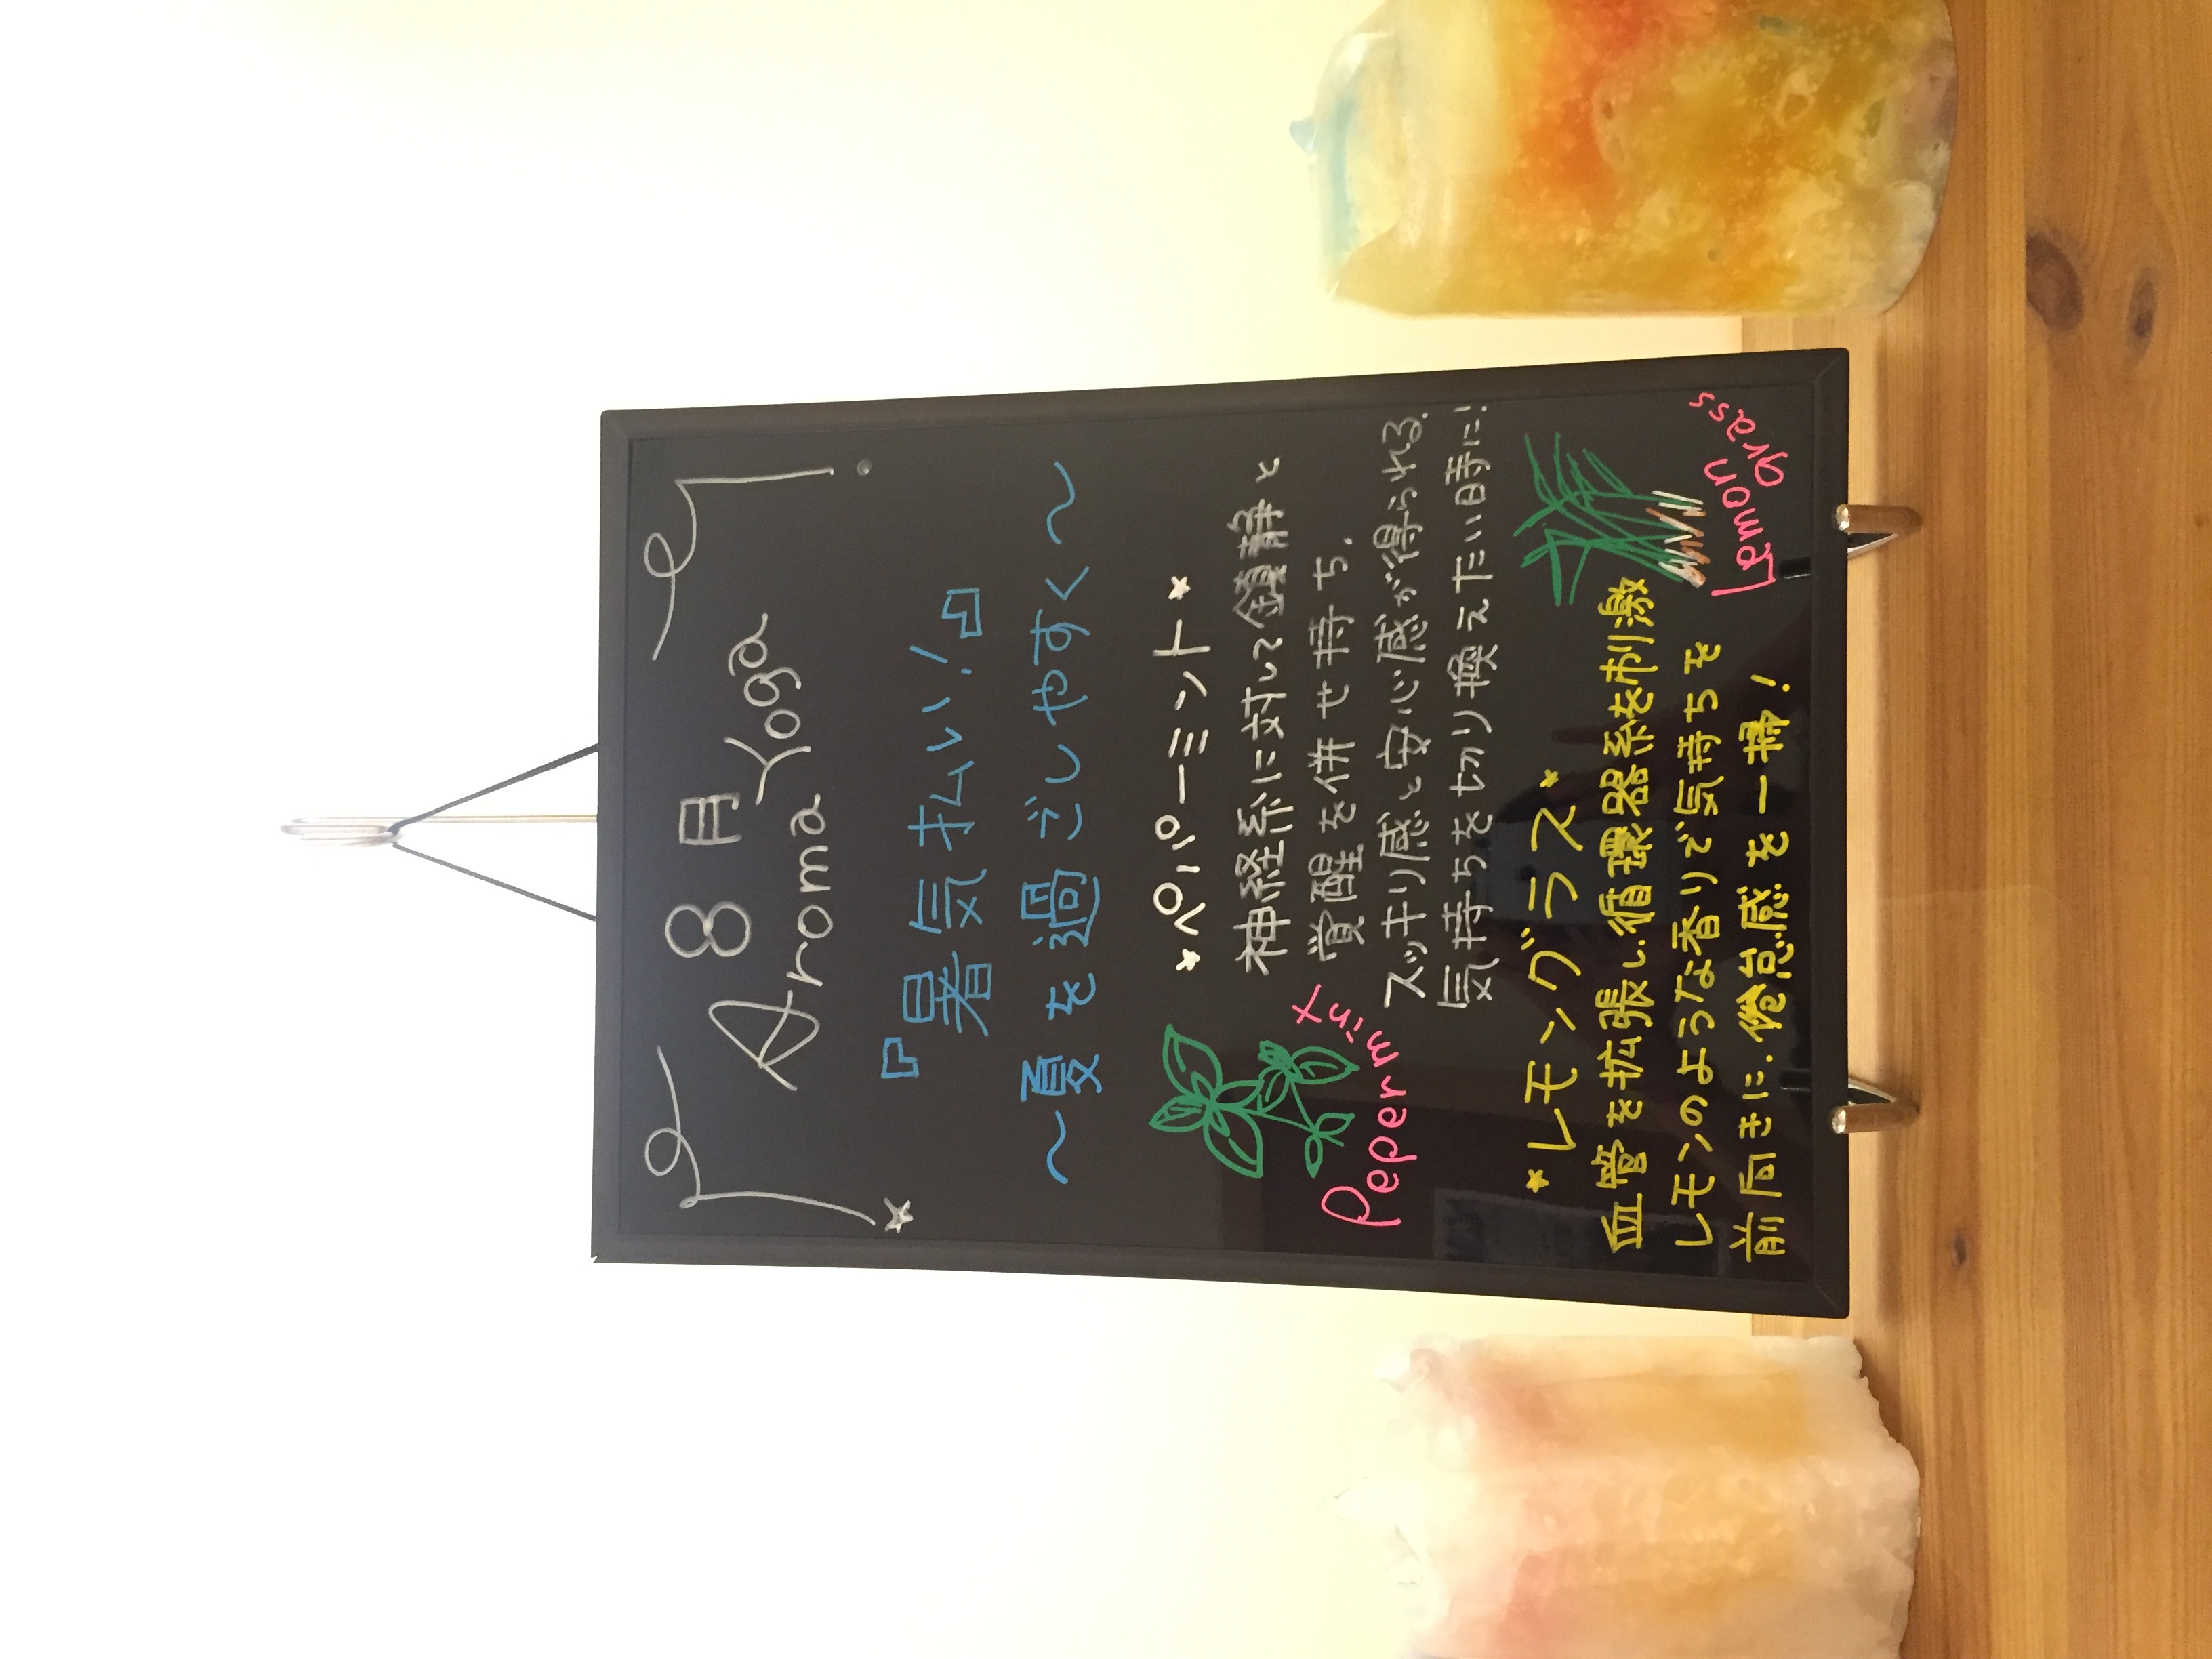 8月
Aroma Yoga
『暑気払い!』
～夏を過ごしやすく～
★ペパーミント★
神経系に対して鎮静と
覚醒を併せ持ち、
スッキリ感と安心感が得られる。
気持ちを切り換えたい時に!
Pepermint
★レモングラス★
血管を拡張し循環器系を刺激
レモンのような香りで気持ちを
前向きに、倦怠感を一掃!
Lemon
grass